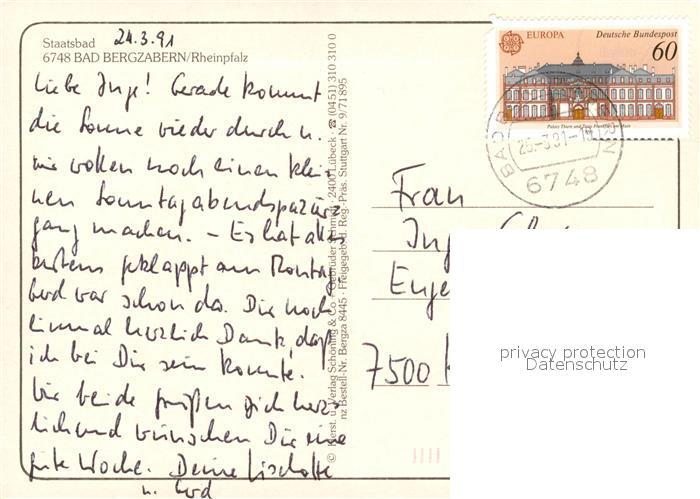 24.3.91
Staatsbad
6748 BAD BERGZABERN/Rheinpfalz
Liebe Inge! Gerade kommt
die Sonne wieder durch u.
wir wollen noch einen klei-
nen Sonntagabendspazier-
gang machen. – Es hat alles
bestens geklappt am Montag,
Gerd war schon da. Dir noch
einmal herzlich Dank, daß
ich bei Dir sein konnte.
Wir beide grüßen Dich herz-
lich und wünschen Dir eine
gute Woche. Deine Liselotte
u. Gerd
© Herst. u. Verlag Schöning & Co + Gebrüder Schmidt · 2400 Lübeck · ☎ (0451) 310 310 0
nz Bestell-Nr. Bergza 8445 · Freigegeb.d. Reg.-Präs. Stuttgart Nr. 9/71 895
EUROPA Deutsche Bundespost
60
Palais Thurn und Taxis, Frankfurt am Main
BAD B
25.-3.91-1
6748
Frau
Inge
7500 K
privacy protection
Datenschutz